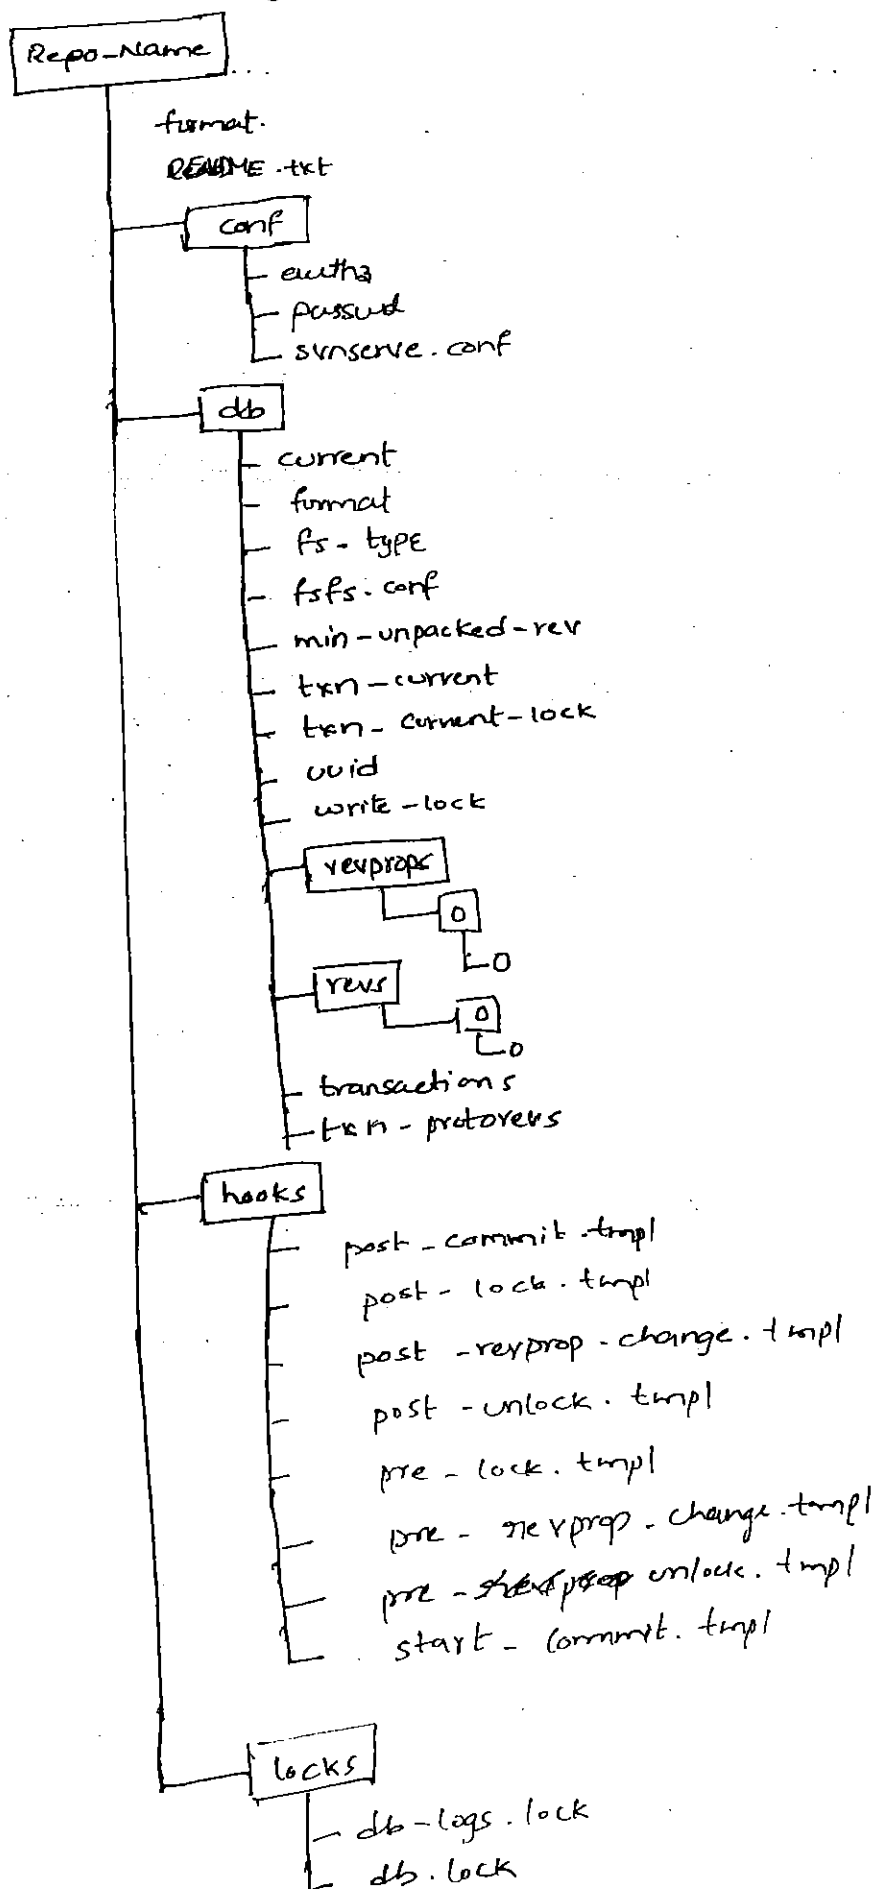 Repo-Name
format.
README.txt
conf
authz
passwd
svnserve.conf
db
current
format
fs-type
fsfs.conf
min-unpacked-rev
txn-current
txn-current-lock
uuid
write-lock
revprops
0
0
revs
0
0
transactions
txn-protorevs
hooks
post-commit.tmpl
post-lock.tmpl
post-revprop-change.tmpl
post-unlock.tmpl
pre-lock.tmpl
pre-revprop-change.tmpl
pre-unlock.tmpl
start-commit.tmpl
locks
db-logs.lock
db.lock